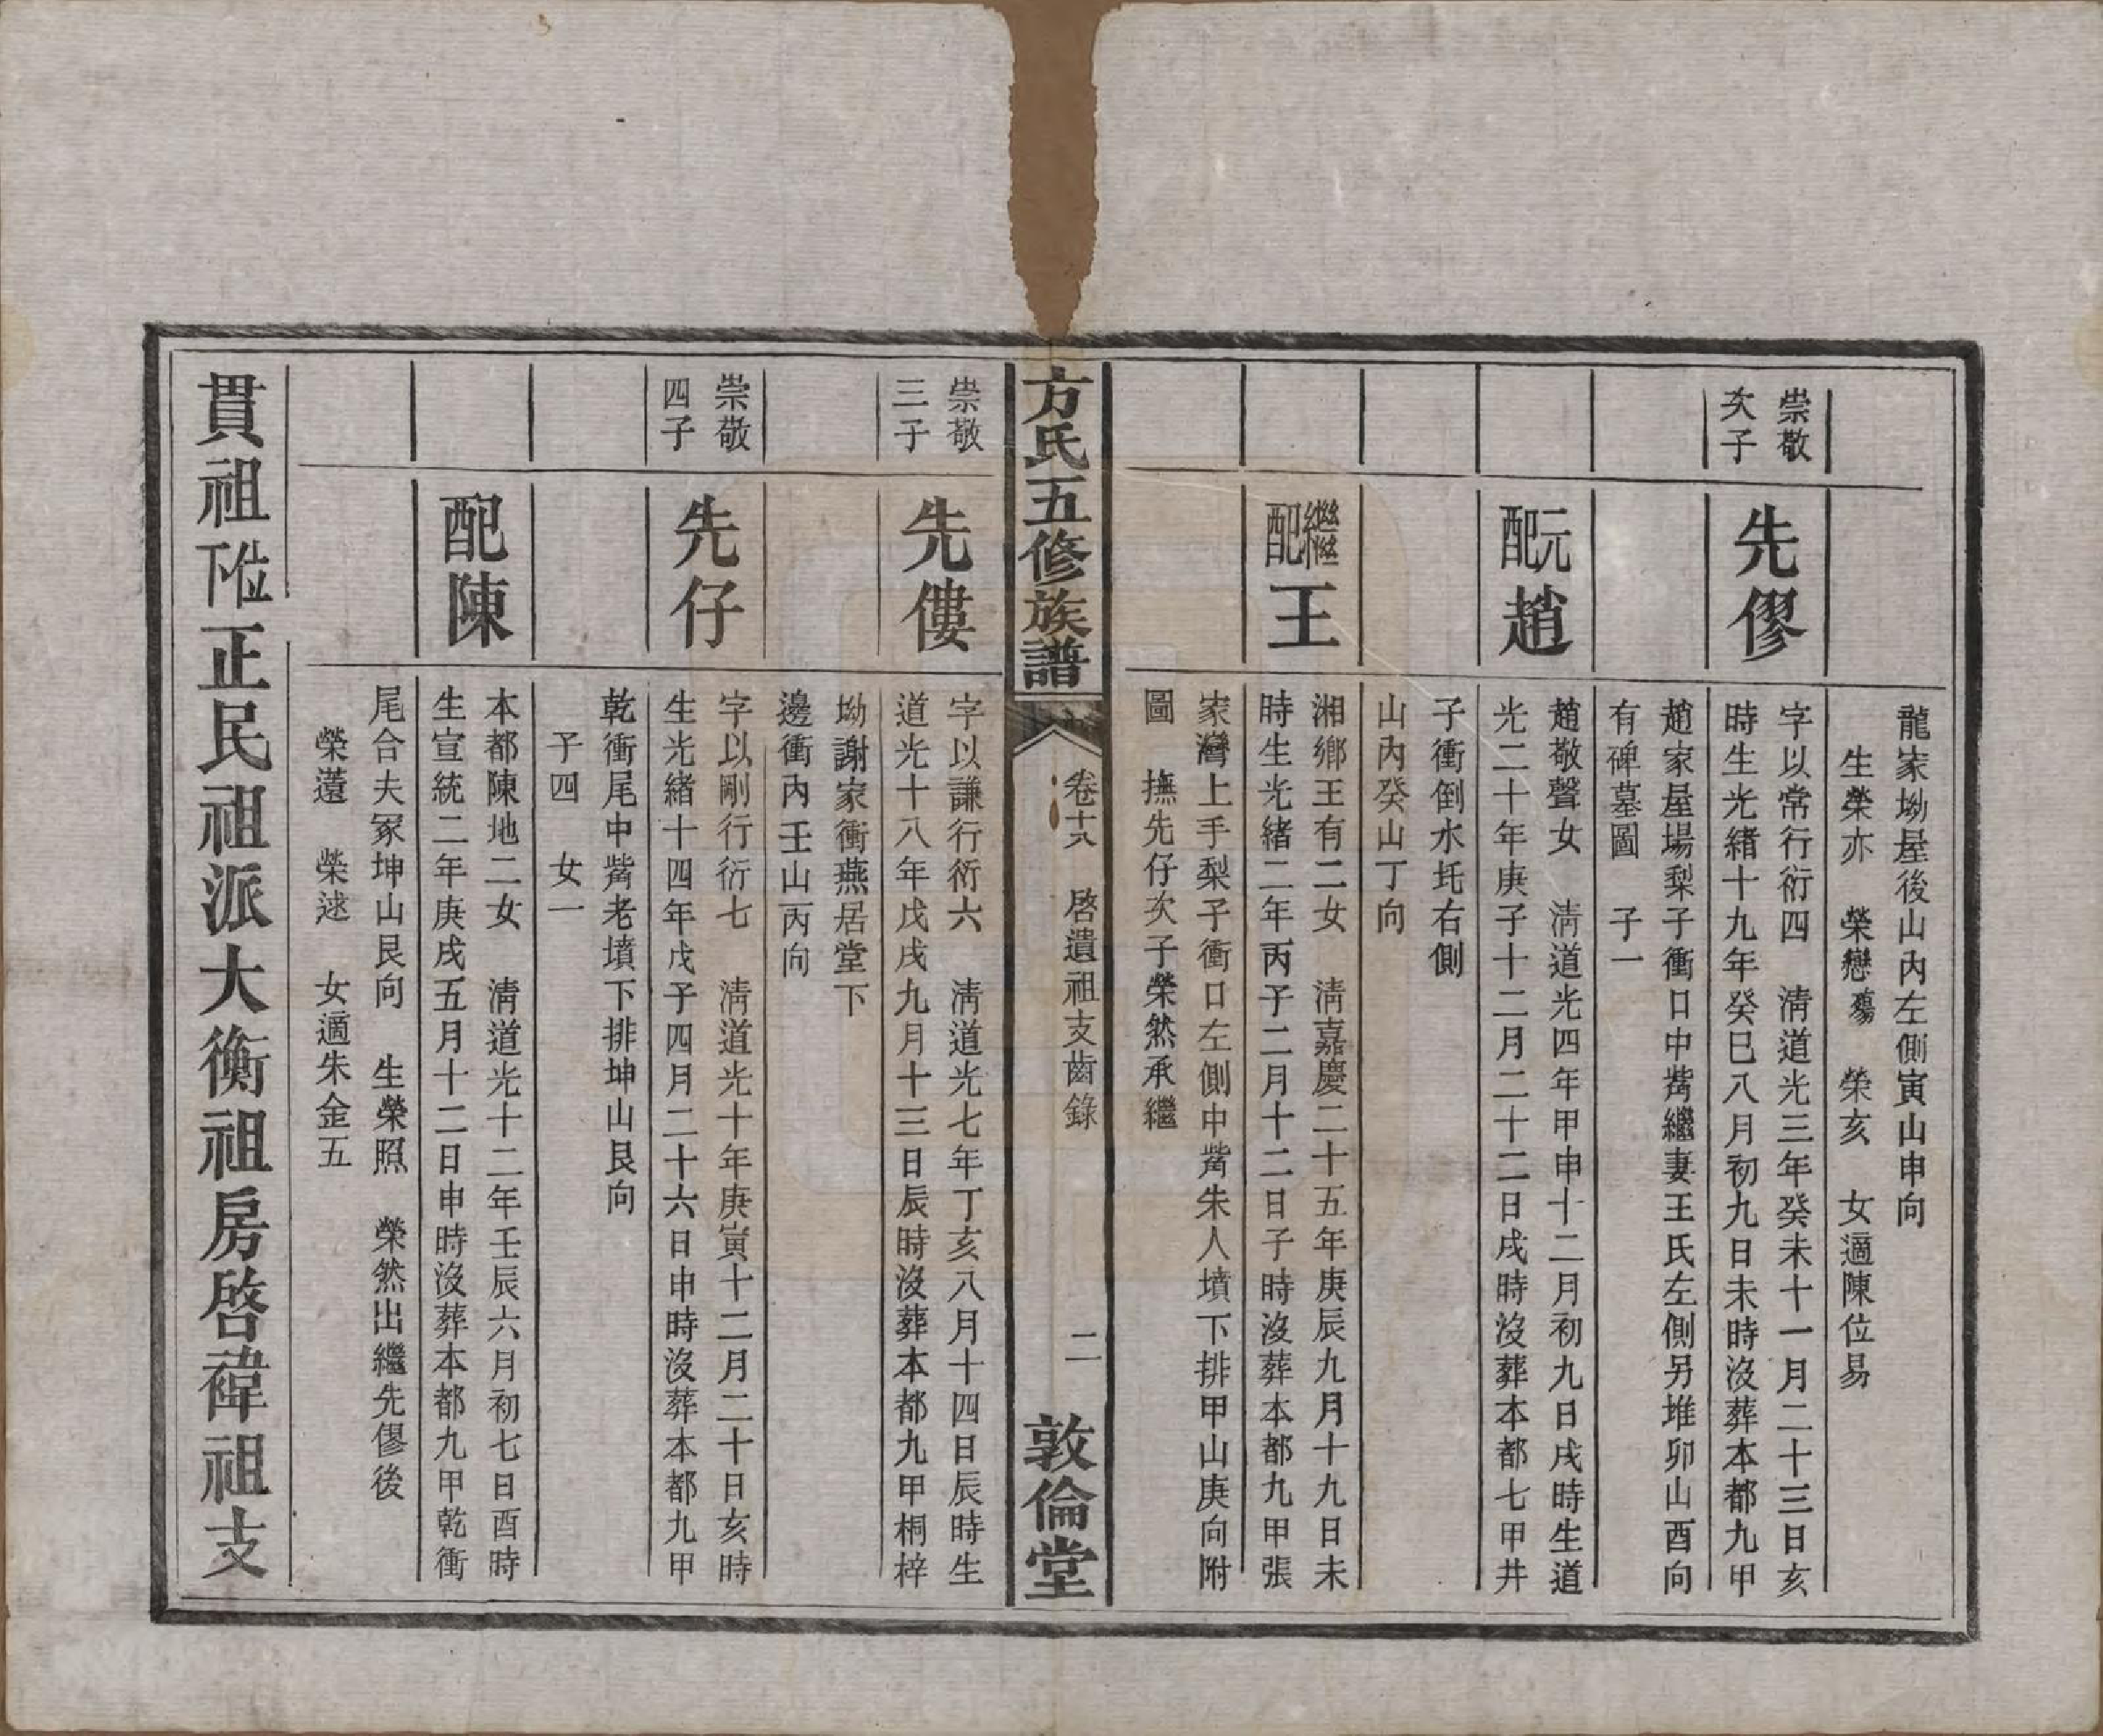 龍家坳屋後山內左側寅山申向
生榮亦　榮戀殤　榮亥　女適陳位易
崇敬
次子
先僇
字以常行衍四　清道光三年癸未十一月二十三日亥
時生光緒十九年癸巳八月初九日未時沒葬本都九甲
趙家屋場梨子衝口中嘴繼妻王氏左側另堆卯山酉向
有碑墓圖　子一
元配趙
趙敬聲女　清道光四年甲申十二月初九日戌時生道
光二十年庚子十二月二十二日戌時沒葬本都七甲井
子衝倒水圫右側
山內癸山丁向
繼配王
湘鄉王有二女　清嘉慶二十五年庚辰九月十九日未
時生光緒二年丙子二月十二日子時沒葬本都九甲張
家灣上手梨子衝口左側中嘴朱人墳下排甲山庚向附
圖　撫先仔次子榮然承繼
方氏五修族譜
卷十八　啓遺祖支齒錄
二
敦倫堂
崇敬
三子
先僂
字以謙行衍六　清道光七年丁亥八月十四日辰時生
道光十八年戊戌九月十三日辰時沒葬本都九甲桐梓
坳謝家衝燕居堂下
邊衝內壬山丙向
崇敬
四子
先仔
字以剛行衍七　清道光十年庚寅十二月二十日亥時
生光緒十四年戊子四月二十六日申時沒葬本都九甲
乾衝尾中嘴老墳下排坤山艮向
子四　女一
配陳
本都陳地二女　清道光十二年壬辰六月初七日酉時
生宣統二年庚戌五月十二日申時沒葬本都九甲乾衝
尾合夫冢坤山艮向　生榮照　榮然出繼先僇後
榮薳　榮逑　女適朱金五
貫祖阼正民祖派大衡祖房啓禕祖支